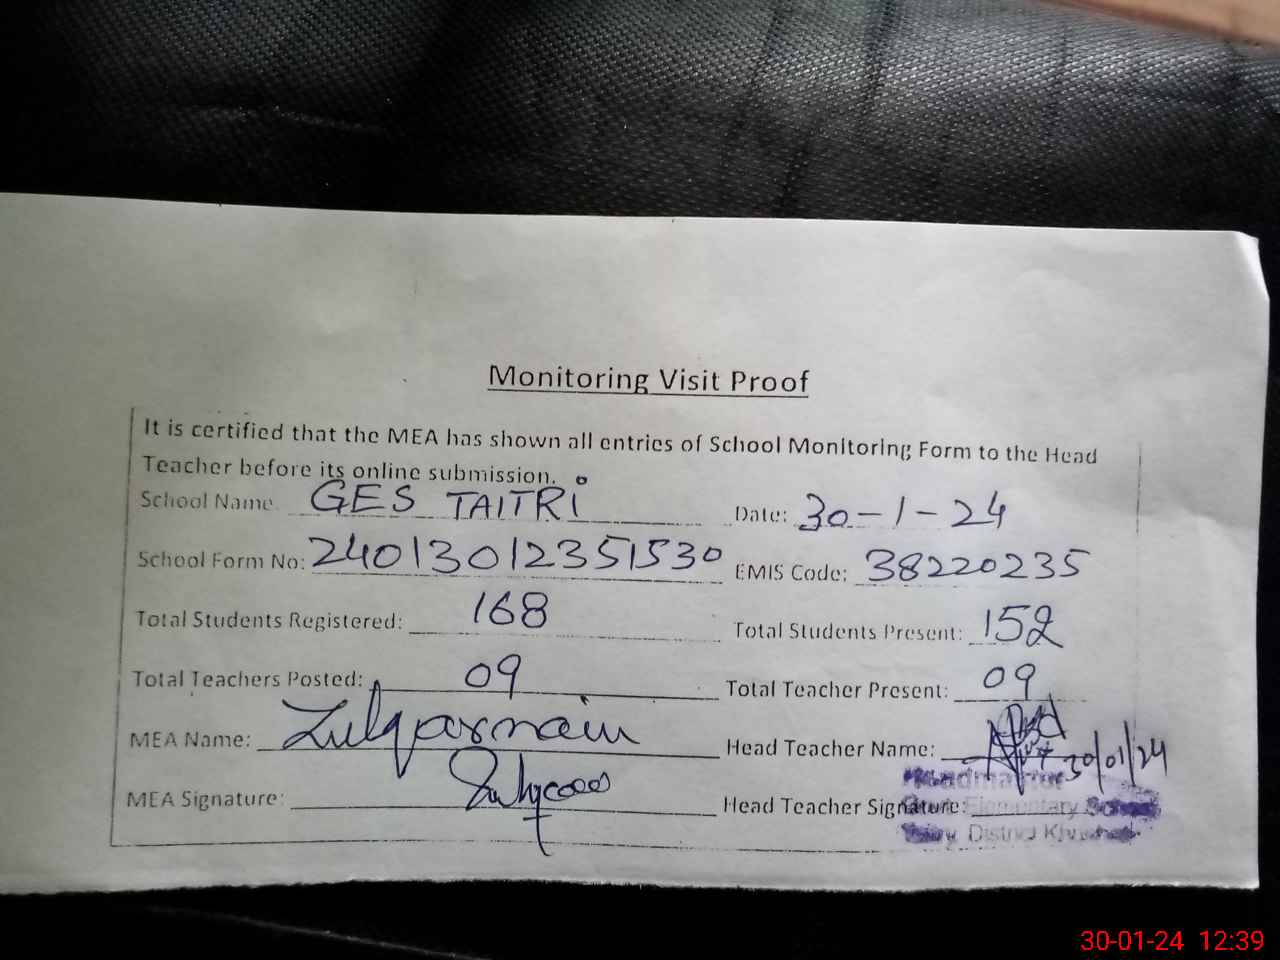 Monitoring Visit Proof
It is certified that the MEA has shown all entries of School Monitoring Form to the Head
Teacher before its online submission.
School Name GES TAITRi Date: 30-1-24
School Form No: 24013012351530 EMIS Code: 38220235
Total Students Registered: 168 Total Students Present: 152
Total Teachers Posted: 09 Total Teacher Present: 09
MEA Name: Zulqarnain Head Teacher Name: 30/01/24
MEA Signature: Head Teacher Signature:
Headmaster
Elementary School
District Khushab
30-01-24 12:39